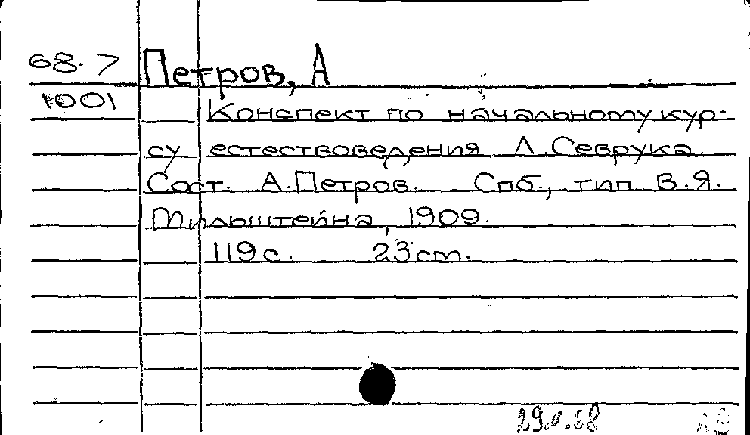 68.7 Петров, А
1001 Конспект по начальному кур-
су естествоведения Л. Севрука
Сост. А. Петров. Спб., тип В.Я.
Мильштейна, 1909.
119 с. 23 cm.